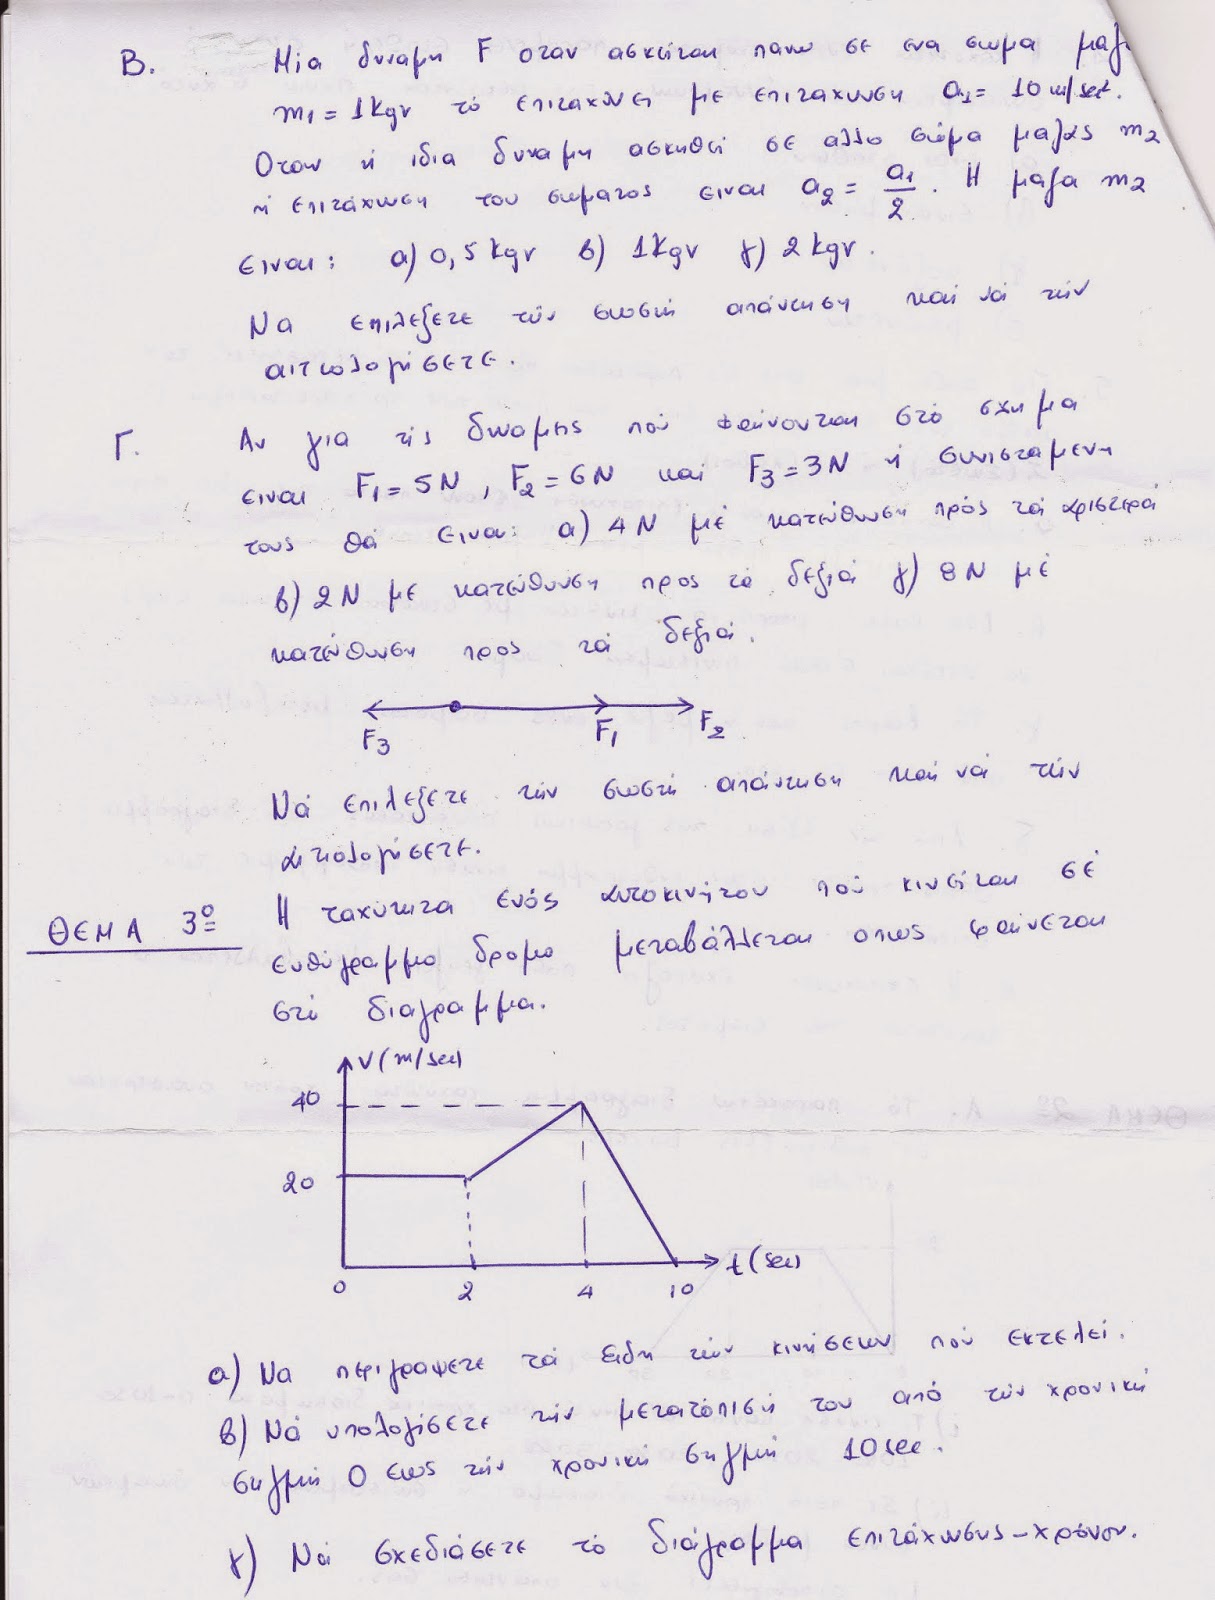 Β. Μια δυναμη F οταν ασκειται πανω σε ενα σωμα μαζ
m₁ = 1kgr το επιταχυνει με επιταχυνση a₁= 10 m/sec².
Οταν ή ιδια δυναμη ασκηθεί σε αλλο σώμα μαζας m₂
ή επιτάχυνση του σωματος ειναι a₂ = a₁/2. Η μαζα m₂
ειναι: α) 0,5 kgr β) 1kgr γ) 2 kgr.
Να επιλεξετε τήν σωστή απάντηση καί νά τήν
αιτιολογήσετε.
Γ. Αν για τίς δυναμεις πού φαίνονται στό σχημα
ειναι F₁= 5N, F₂ = 6N καί F₃ = 3N ή συνισταμενη
τους θά ειναι: α) 4N μέ κατεύθυνση πρός τά αριστερά
β) 2N με κατεύθυνση προς τά δεξιά γ) 8N μέ
κατεύθυνση προς τά δεξιά.
F₃ F₁ F₂
Νά επιλεξετε τήν σωστή απάντηση καί νά τήν
αιτιολογήσετε.
ΘΕΜΑ 3º Η ταχύτητα ενός αυτοκινήτου πού κινείται σέ
ευθύγραμμο δρομο μεταβάλλεται οπως φαίνεται
στό διαγραμμα.
V(m/sec)
40
20
0 2 4 10 t(sec)
α) Να περιγραψετε τά ειδη τών κινήσεων πού εκτελεί.
β) Νά υπολογίσετε τήν μετατόπισή του από τήν χρονική
στιγμή 0 εως τήν χρονική στιγμή 10sec.
γ) Νά σχεδιάσετε τό διάγραμμα επιτάχυνσης-χρόνου.